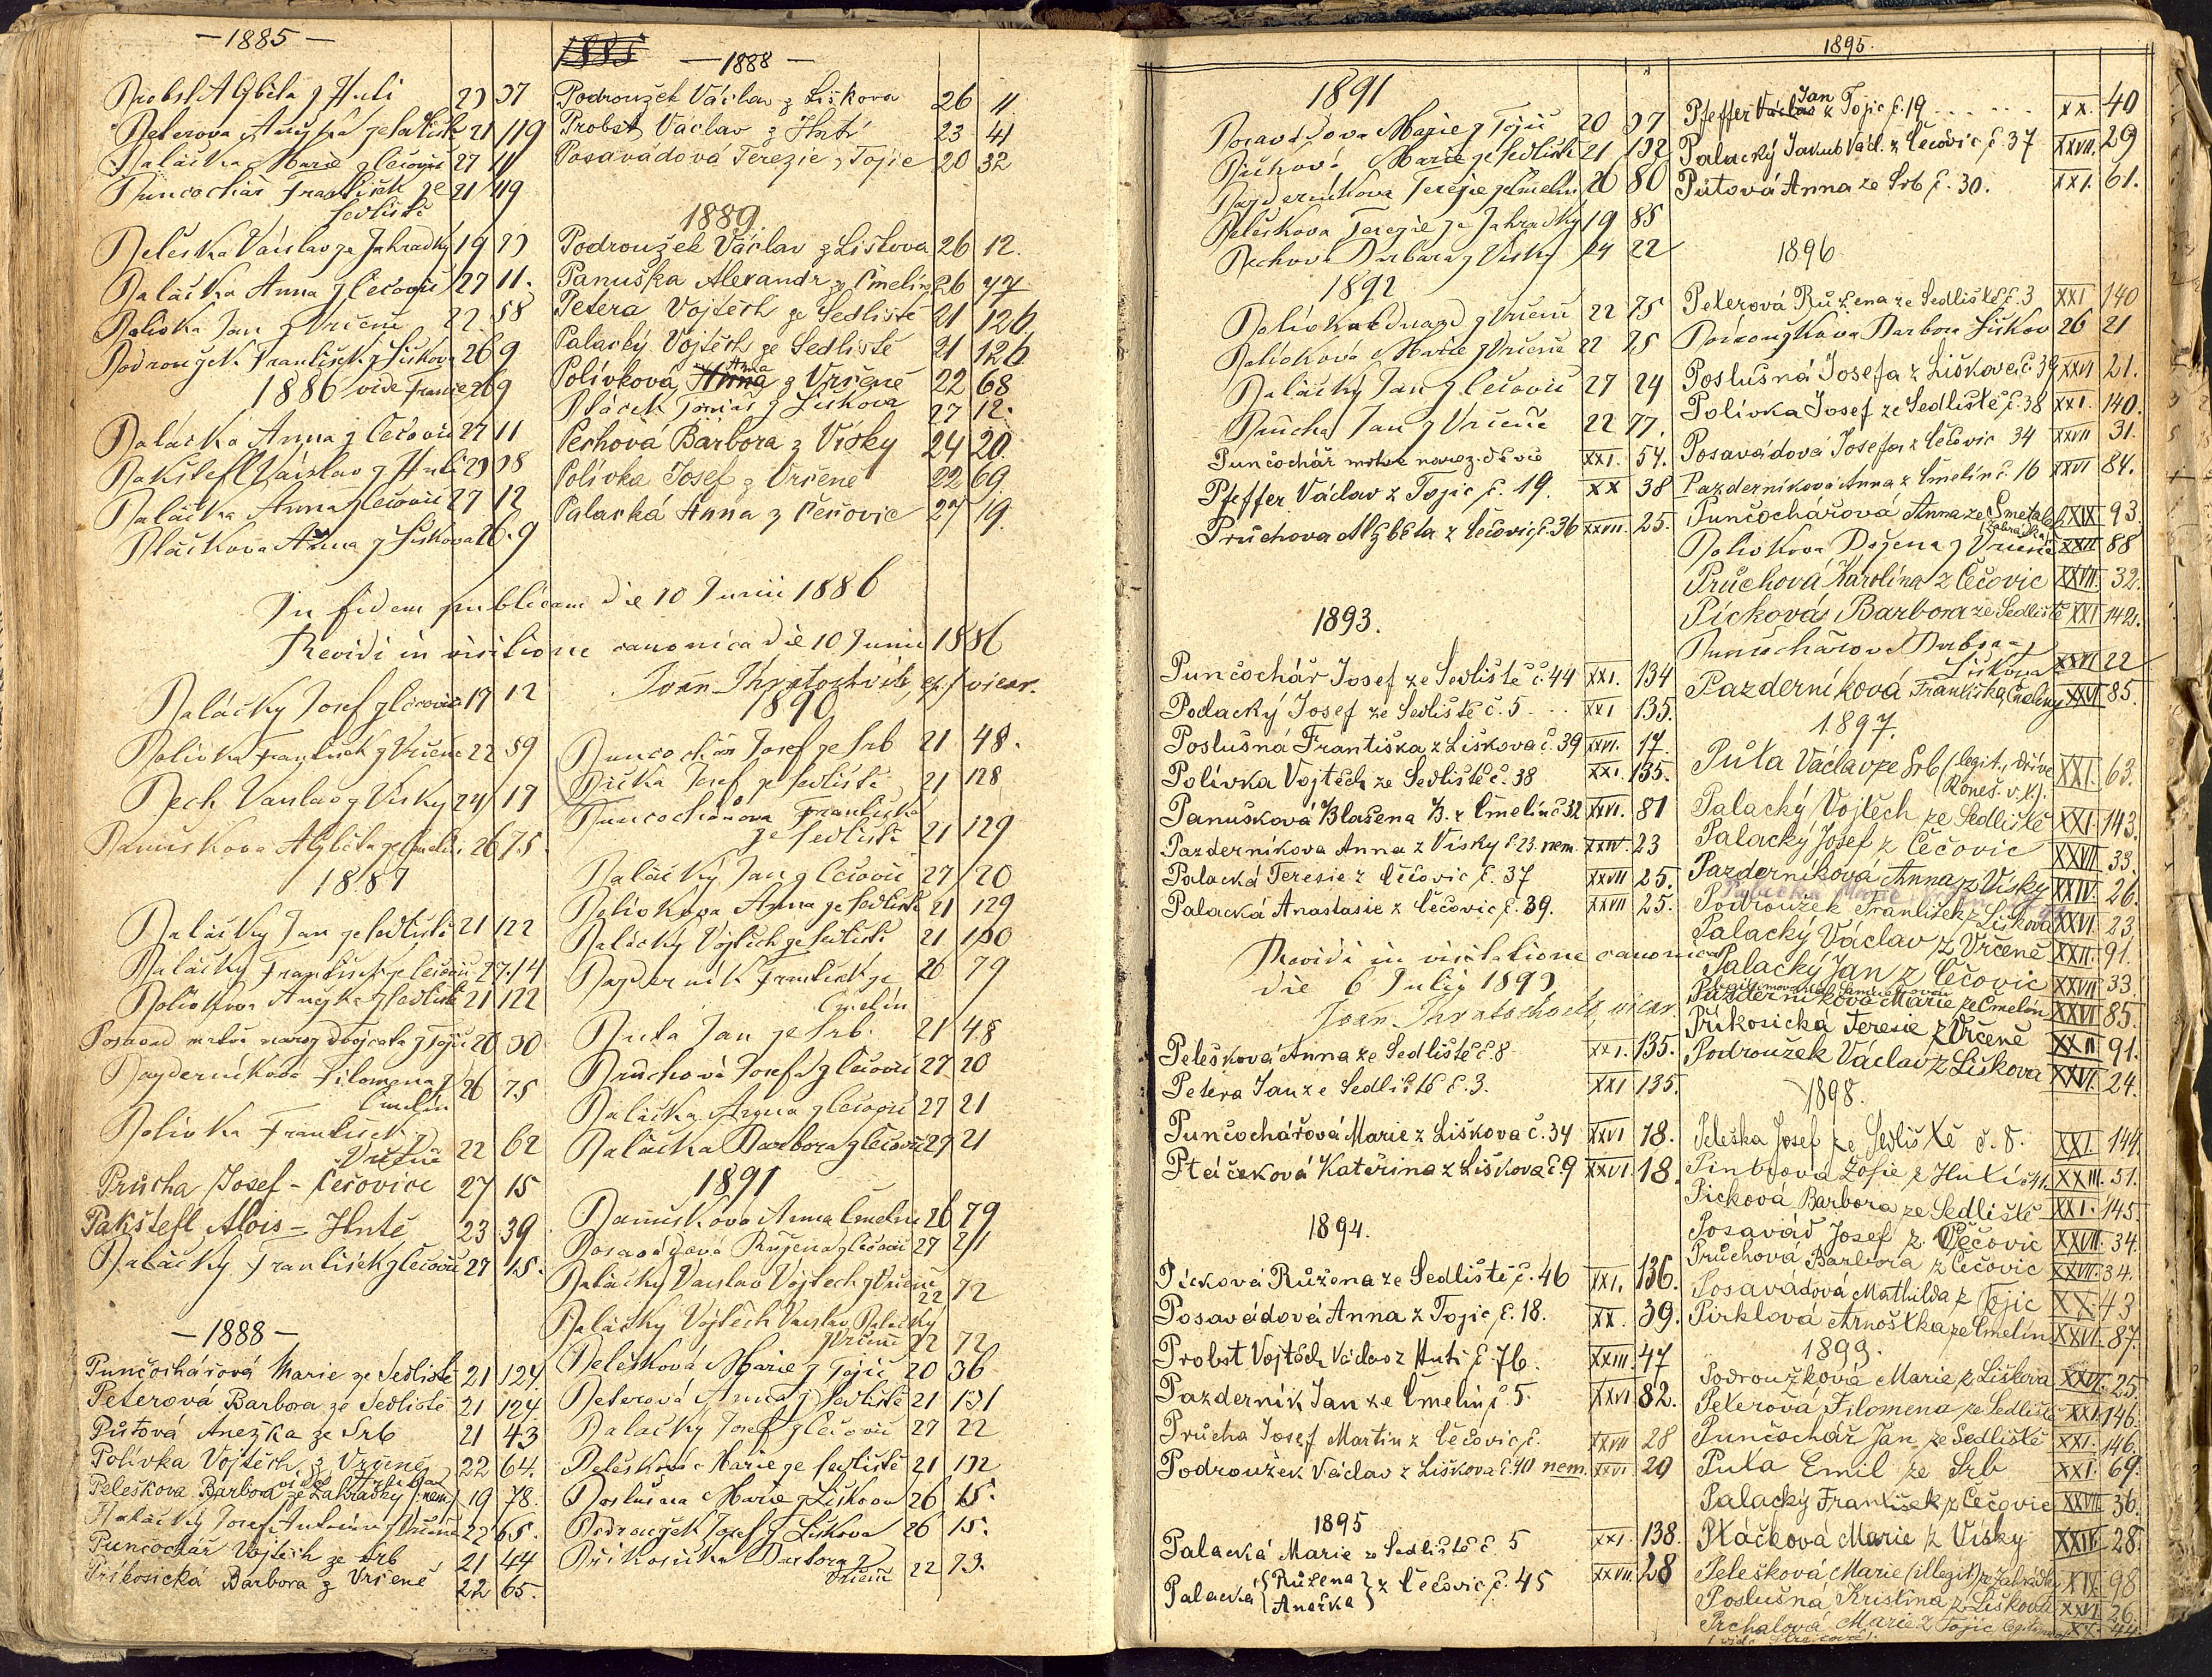 — 1885 —
Probst Alžběta z Huti 23 37
Peterova Anežka ze Sedliště 21 119
Palacka Marie z Čečovic 27 11
Puncochář František ze 21 119
Sedliště
Peleška Václav ze Zahradky 19 73
Palacka Anna z Čečovic 27 11.
Polivka Jan z Vrčeně 22. 58
Podroužek František z Liškova 26 9
1886 vide Franc 26 9
Palacka Anna z Čečovic 27 11
Pakštefl Václav z Huti 23 38
Palacka Anna z Čečovic 27 12
Ptáčkova Anna z Liškova 26. 9
In fidem publicam die 10 Junii 1886
Revidi in visitione canonica die 10 Junii 1886
Palácky Josef z Čečovic 27 12
Polivka František z Vrčeně 22 59
Pech Václav z Vísky 24 17
Panuškova Alžběta ze Čmelin 26 75.
1887
Palácky Jan ze Sedliště 21 122
Palácky František z Čečovic 27. 14
Polivkova Anežka z Sedliště 21 122
Posavad mrtvě naroz dvojčata z Tojic 20 30
Pazderníkova Filomena z 26 75
Čmelín
Polivka František z
Vrčeně 22 62
Průcha Josef - Čečovice 27 15
Pakštefl Alois - Hutě 23 39
Palácky František z Čečovic 27 15.
— 1888 —
Punčochářová Marie ze Sedliště 21 124
Peterová Barbora ze Sedliště 21 124
Půtová Anežka ze Srb 21 43
Polívka Vojtěch z Vrčeně 22 64.
Peleškova Barbora ze Zahrádky (nem) 19 78.
Palacký Josef Antonín z Vrčeně 22 65.
Puncochář Vojtěch ze Srb 21 44
Příkosická Barbora z Vrčeně 22 65.
1885 — 1888 —
Podroužek Václav z Liškova 26 11
Probst Václav z Hutí 23 41
Posavádová Terezie z Tojic 20 32
1889.
Podroužek Václav z Liškova 26 12.
Panuška Alexandr z Čmelín 26 77
Petera Vojtěch ze Sedliště 21 126
Palacký Vojtěch ze Sedliště 21 126
Polívková Anna z Vrčeně 22 68
Ptáček Tomáš z Liškova 27 12.
Pechová Barbora z Vísky 24 20.
Polívka Josef z Vrčeně 22 69
Palacká Anna z Čečovic 27 19.
1890
Puncochář Josef ze Srb 21 48.
Picka Josef ze Sedliště 21 128
Puncochářova Františka
ze Sedliště 21 129
Palácký Jan z Čečovic 27 20
Polivkova Anna ze Sedliště 21 129
Palácký Vojtěch ze Sedliště 21 130
Pazderník František ze 26 79
Čmelín
Puta Jan ze Srb. 21 48
Průchová Josefa z Čečovic 27 20
Palácka Anna z Čečovic 27 21
Palácka Barbora z Čečovic 27 21
1891
Panuškova Anna Čmelin 26 79
Posavádová Růžena z Čečovic 27 21
Palácky Vaclav Vojtech z Vrčeně
22 72
Palácky Vojtěch Vaclav Palacky
z Vrčeně 22 72
Pelešková Marie z Tojic 20 36
Peterová Anna z Sedliště 21 131
Palacky Josef z Čečovic 27 22
Pelešková Marie ze Sedliště 21 132
Poslušna Marie z Liškova 26 15.
Podroužek Josef z Liškova 26 15.
Příkosicka Barbora z
Vrčeně 22 73.
1895.
1891
Posavádova Marie z Tojic 20 37
Půchová Marie ze Sedliště 21 132
Pazderníkova Terezie z Čmelin 26 80
Peleškova Terezie ze Zahradky 19 85
Pechova Barbara z Vísky 24 22
1892
Polívka Eduard z Vrčeně 22 75
Polívková Marie z Vrčeně 22 75
Palácký Jan z Čečovic 27 24
Průcha Jan z Vrčeně 22 77.
Punčochář mrtvě naroz. děvče XXI. 54.
Pfeffer Václav z Tojic č. 19. XX 38
Průchova Alžběta z Čečovic č. 36 XXVII. 25.
1893.
Punčochář Josef ze Sedliště č. 44 XXI. 134
Podacký Josef ze Sedliště č. 5 XXI 135.
Poslušná Františka z Liškova č. 39 XXVI. 17.
Polívka Vojtěch ze Sedliště č. 38 XXI. 135.
Panušková Blažena B. z Čmelín č 32 XXVI. 81
Pazderníkova Anna z Vísky č. 23. nem. XXIV. 23
Palacká Teresie z Čečovic č. 37 XXVII 25.
Palacká Anastasie z Čečovic č. 39. XXVII 25.
Revidi in visitatione canonica
die 6 Julii 1893
Pelešková Anna ze Sedliště č. 8 XXI. 135.
Petera Jan ze Sedliště č. 3. XXI 135.
Punčochářová Marie z Liškova č. 34 XXVI 78.
Ptáčeková Kateřina z Liškova č. 9 XXVI 18.
1894.
Pícková Růžena ze Sedliště č. 46 XXI. 136.
Posavádová Anna z Tojic č. 18. XX. 39.
Probst Vojtěch Václav z Huti č. 76. XXIII 47
Pazderník Jan ze Čmelín č 5. XXVI 82.
Průcha Josef Martin z Čečovic č. XXVII 28
Podroužek Václav z Liškova č. 40 nem. XXVI 20
1895
Palacká Marie ze Sedliště č 5 XXI. 138.
Palacká {Růžena Anežka} z Čečovic č. 45 XXVII. 28
Jan
Pfeffer Václav z Tojic č. 19 . . . . . XX. 40
Palacký Jakub Václ. z Čečovic č. 37 XXVII. 29
Půtová Anna ze Srb č. 30. XXI. 61.
1896
Peterová Růžena ze Sedliště č. 3 XXI 140
Podroužkova Barbora Liškov 26 21
Poslušná Josefa z Liškova č. 39 XXVI 21.
Polívka Josef ze Sedliště č. 38 XXI. 140.
Posavádová Josefa z Čečovic 34 XXVII 31.
Pazderníková Anna z Čmelín č. 16 XXVI 84.
Punčochářová Anna ze Smetak XIX 93.
(Zahrádka)
Polivkova Božena z Vrčeně XXII 88
Průchová Karolína z Čečovic XXVII. 32.
Pícková Barbora ze Sedliště XXI 142.
Punčochářova Barbora z
Liškova XXVI 22
Pazderníková Františka Čmeliny XXVI 85.
1897.
Půta Václav ze Srb (legit., dříve XXI. 63.
Roneš. v. K).
Palacký Vojtěch ze Sedliště XXI. 143.
Palacký Josef z Čečovic XXVII 33.
Pazderníková Anna z Vísky XXIV. 26.
Podroužek František z Liškova XXVI. 23
Palacký Václav z Vrčeně XXII. 91.
Palacký Jan z Čečovic XXVII 33.
Pazderníková Marie ze Čmelín XXVI 85.
Příkosická Teresie z Vrčeně XXII 91.
Podroužek Václav z Liškova XXVI. 24.
1898.
Peleška Josef ze Sedliště č. 8. XXI. 144.
Pintrova Žofie z Hutí XXIII. 51.
Picková Barbora ze Sedliště XXI. 145.
Posavád Josef z Čečovic XXVII. 34.
Průchová Barbora z Čečovic XXVII. 34.
Posavádová Mathilda z Tojic XX. 43
Pirklová Arnoštka ze Čmelín XXVI. 87.
1899.
Podroužková Marie z Liškova XXVI. 25.
Peterová Filomena ze Sedliště XXI. 146.
Punčochář Jan ze Sedliště XXI. 146.
Puta Emil ze Srb XXI. 69.
Palacký František z Čečovic XXVII. 36.
Ptáčková Marie z Vísky XXIV. 28.
Pelešková Marie (illegit) ze Zahrádky XIX. 98
Poslušná Kristina z Liškova XXVI. 26.
Prchalová Marie z Tojic XX. 44.